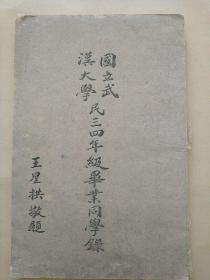 國立武
漢大學民三四年級畢業同學錄
王星拱敬題